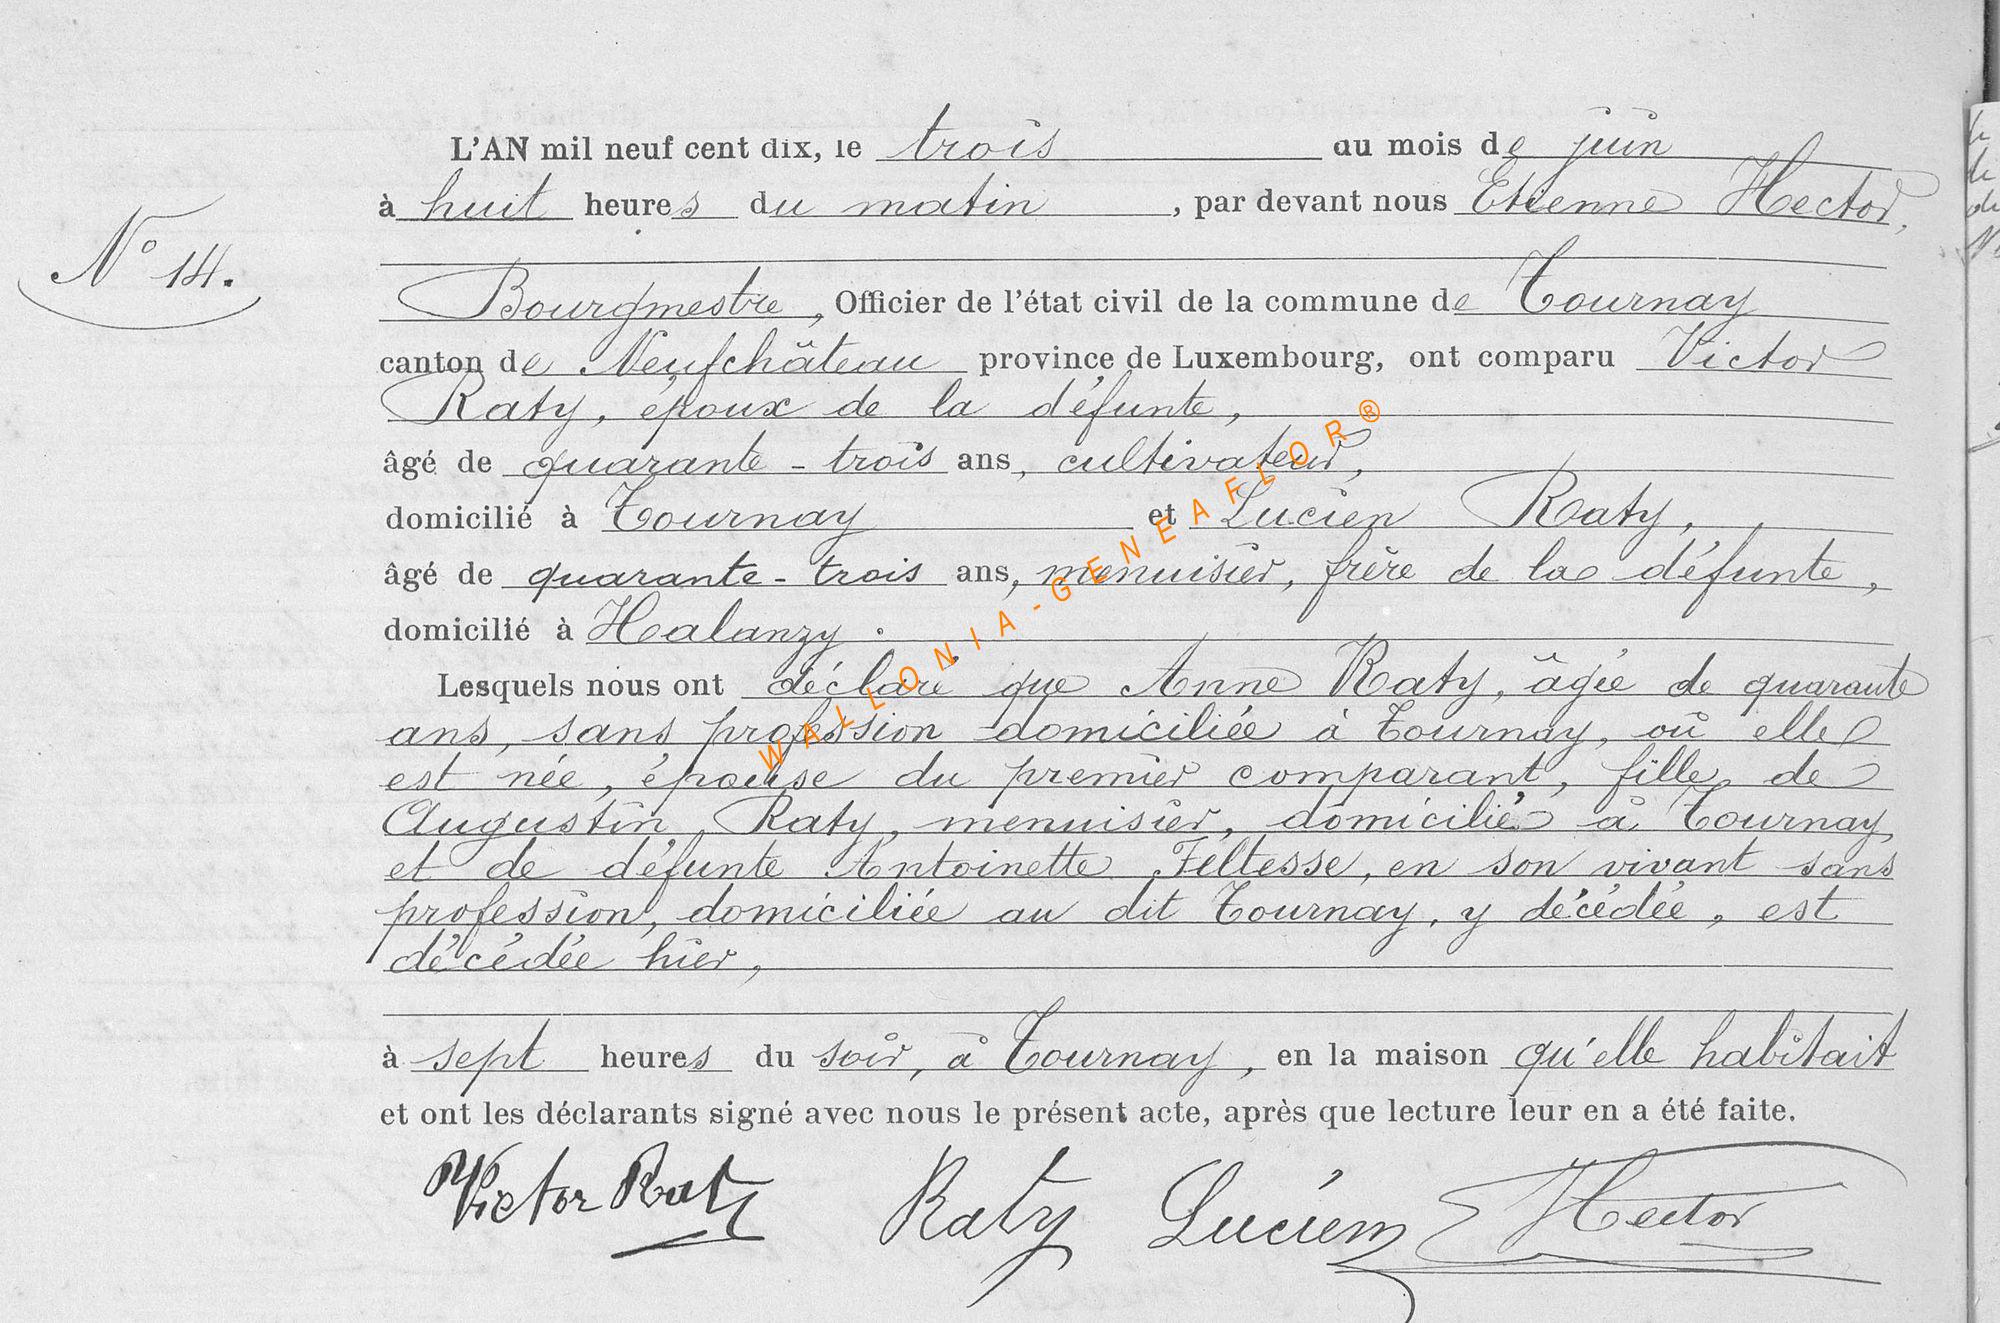 L'AN mil neuf cent dix, le trois au mois de juin
à huit heures du matin, par devant nous Etienne Hector,
N° 14.
Bourgmestre, Officier de l'état civil de la commune de Tournay
canton de Neufchâteau province de Luxembourg, ont comparu Victor
Raty, époux de la défunte,
âgé de quarante-trois ans, cultivateur,
domicilié à Tournay et Lucien Raty,
âgé de quarante-trois ans, menuisier, frère de la défunte,
domicilié à Halanzy.
Lesquels nous ont déclaré que Anne Raty, âgée de quarante
ans, sans profession domiciliée à Tournay, où elle
est née, épouse du premier comparant, fille de
Augustin Raty, menuisier, domicilié à Tournay,
et de défunte Antoinette Feltesse, en son vivant sans
profession, domiciliée au dit Tournay, y décédée, est
décédée hier,
à sept heures du soir, à Tournay, en la maison qu'elle habitait
et ont les déclarants signé avec nous le présent acte, après que lecture leur en a été faite.
Victor Raty Raty Lucien Hector
WALLONIA-GENEAFLOR®